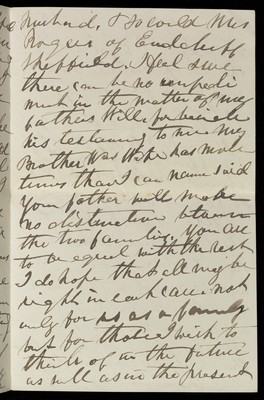 husband, & so could Mrs
Rogers of Endcliff
Sheffield. I feel sure
there can be no impedi
ment in the matter of my
fathers Will for beside
his testimony to me my
Brother Was Wife has more
times than I can name said
Your father will make
no distinction between
the two families. You are
to be equal with the rest
I do hope that all may be
right in each case not
only for us as a family
but for those I wish to
think of in the future
as well as in the present